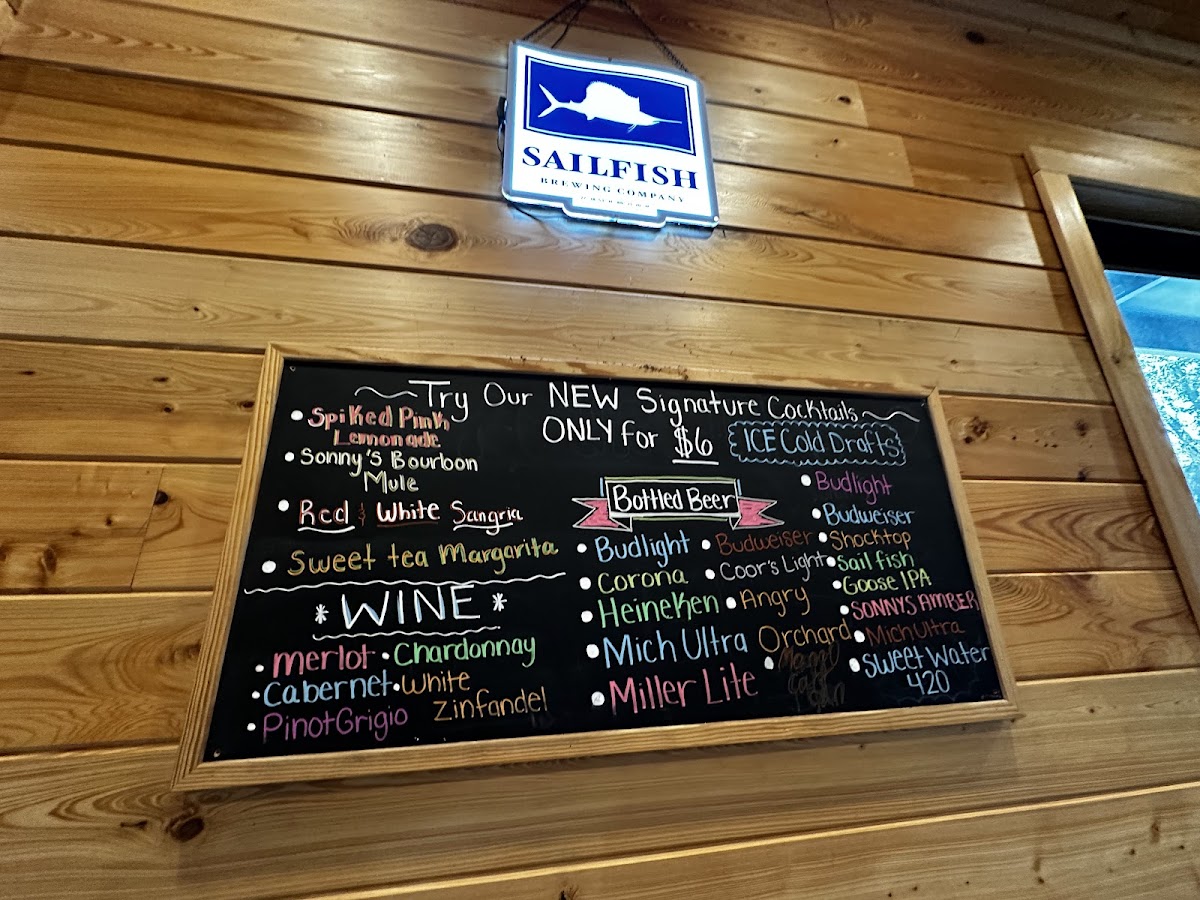 SAILFISH
BREWING COMPANY
Try Our NEW Signature Cocktails
ONLY for $6
• Spiked Pink
Lemonade
• Sonny's Bourbon
Mule
• Red & White Sangria
• Sweet tea Margarita
* WINE *
• merlot • Chardonnay
• Cabernet • White
Zinfandel
• Pinot Grigio
Bottled Beer
• Budlight • Budweiser
• Corona • Coor's Light
• Heineken • Angry
Orchard
• Mich Ultra
• Miller Lite
ICE Cold Drafts
• Budlight
• Budweiser
• Shocktop
• Sail fish
• Goose IPA
• SONNYS AMBER
• Mich Ultra
• Sweet Water
420